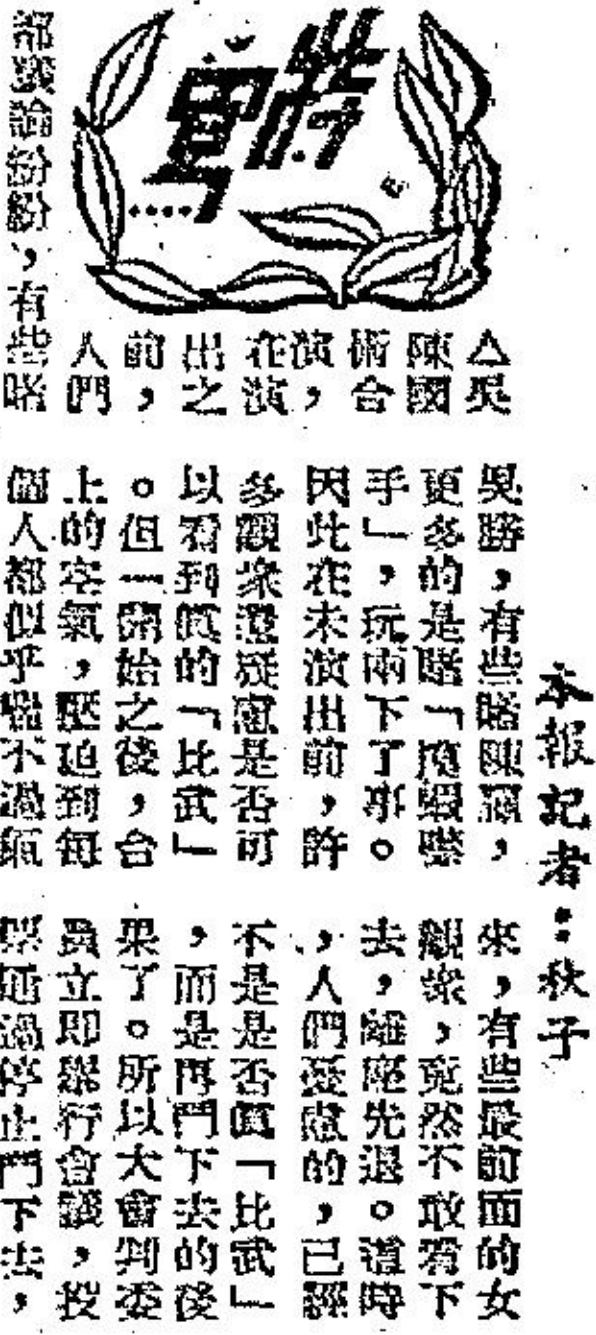 特寫
本報記者：秋子
△吳
陳國
術合
演，
在演
出之
前，
人們
都議論紛紛，有些賭
吳勝，有些賭陳贏，
更多的是賭「
手」，玩兩下了事。
因此在未演出前，許
多觀衆還疑慮是否可
以看到眞的「比武」
。但一開始之後，台
上的空氣，壓迫到每
個人都似乎喘不過氣
來，有些最前面的女
觀衆，竟然不敢看下
去，離座先退。這時
，人們憂慮的，已經
不是是否眞「比武」
，而是再鬥下去的後
果了。所以大會判委
員立即舉行會議，投
票通過停止鬥下去，